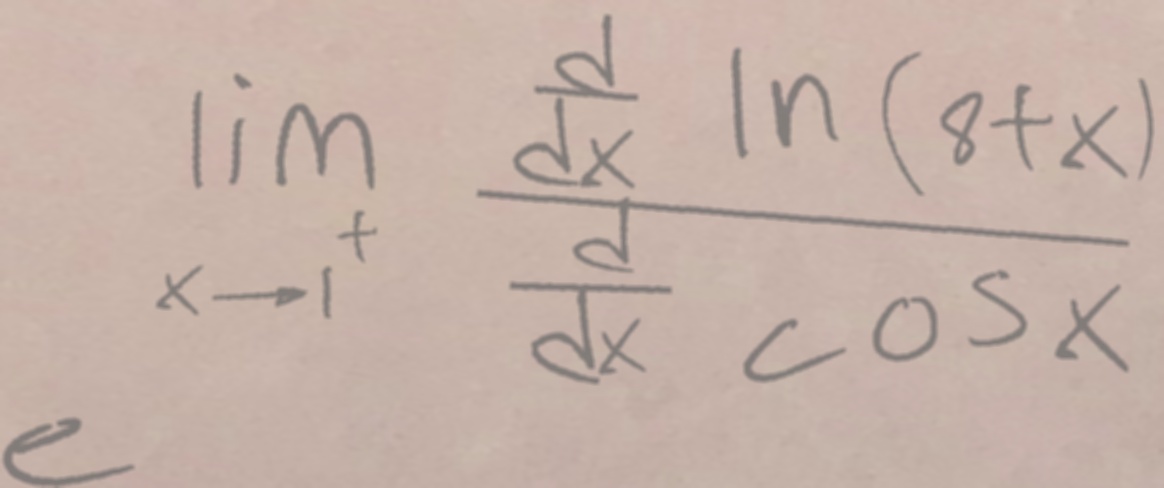 e^{\lim_{x \to 1^{+}} \frac{\frac{d}{dx} \ln(8+x)}{\frac{d}{dx} \cos x}}